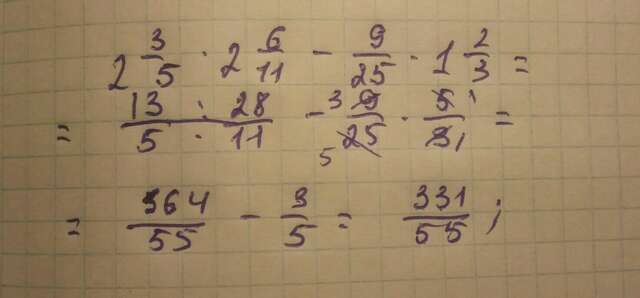 2 3/5 · 2 6/11 - 9/25 · 1 2/3 =
= 13/5 · 28/11 - 9/25 · 5/3 =
= 364/55 - 3/5 = 331/55 ;